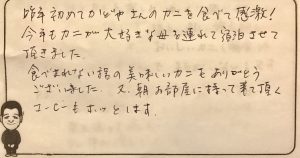 昨年初めてかどやさんのカニを食べて感激!
今年もカニが大好きな母を連れて宿泊させて
頂きました。
食べきれない程の美味しいカニをありがとう
ございました。又、朝お部屋に持って来て頂く
コーヒーもホッとします。